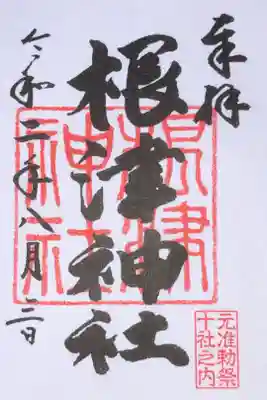 奉拝
根津神社
根津神社
令和二年八月二日
元准勅祭
十社之内